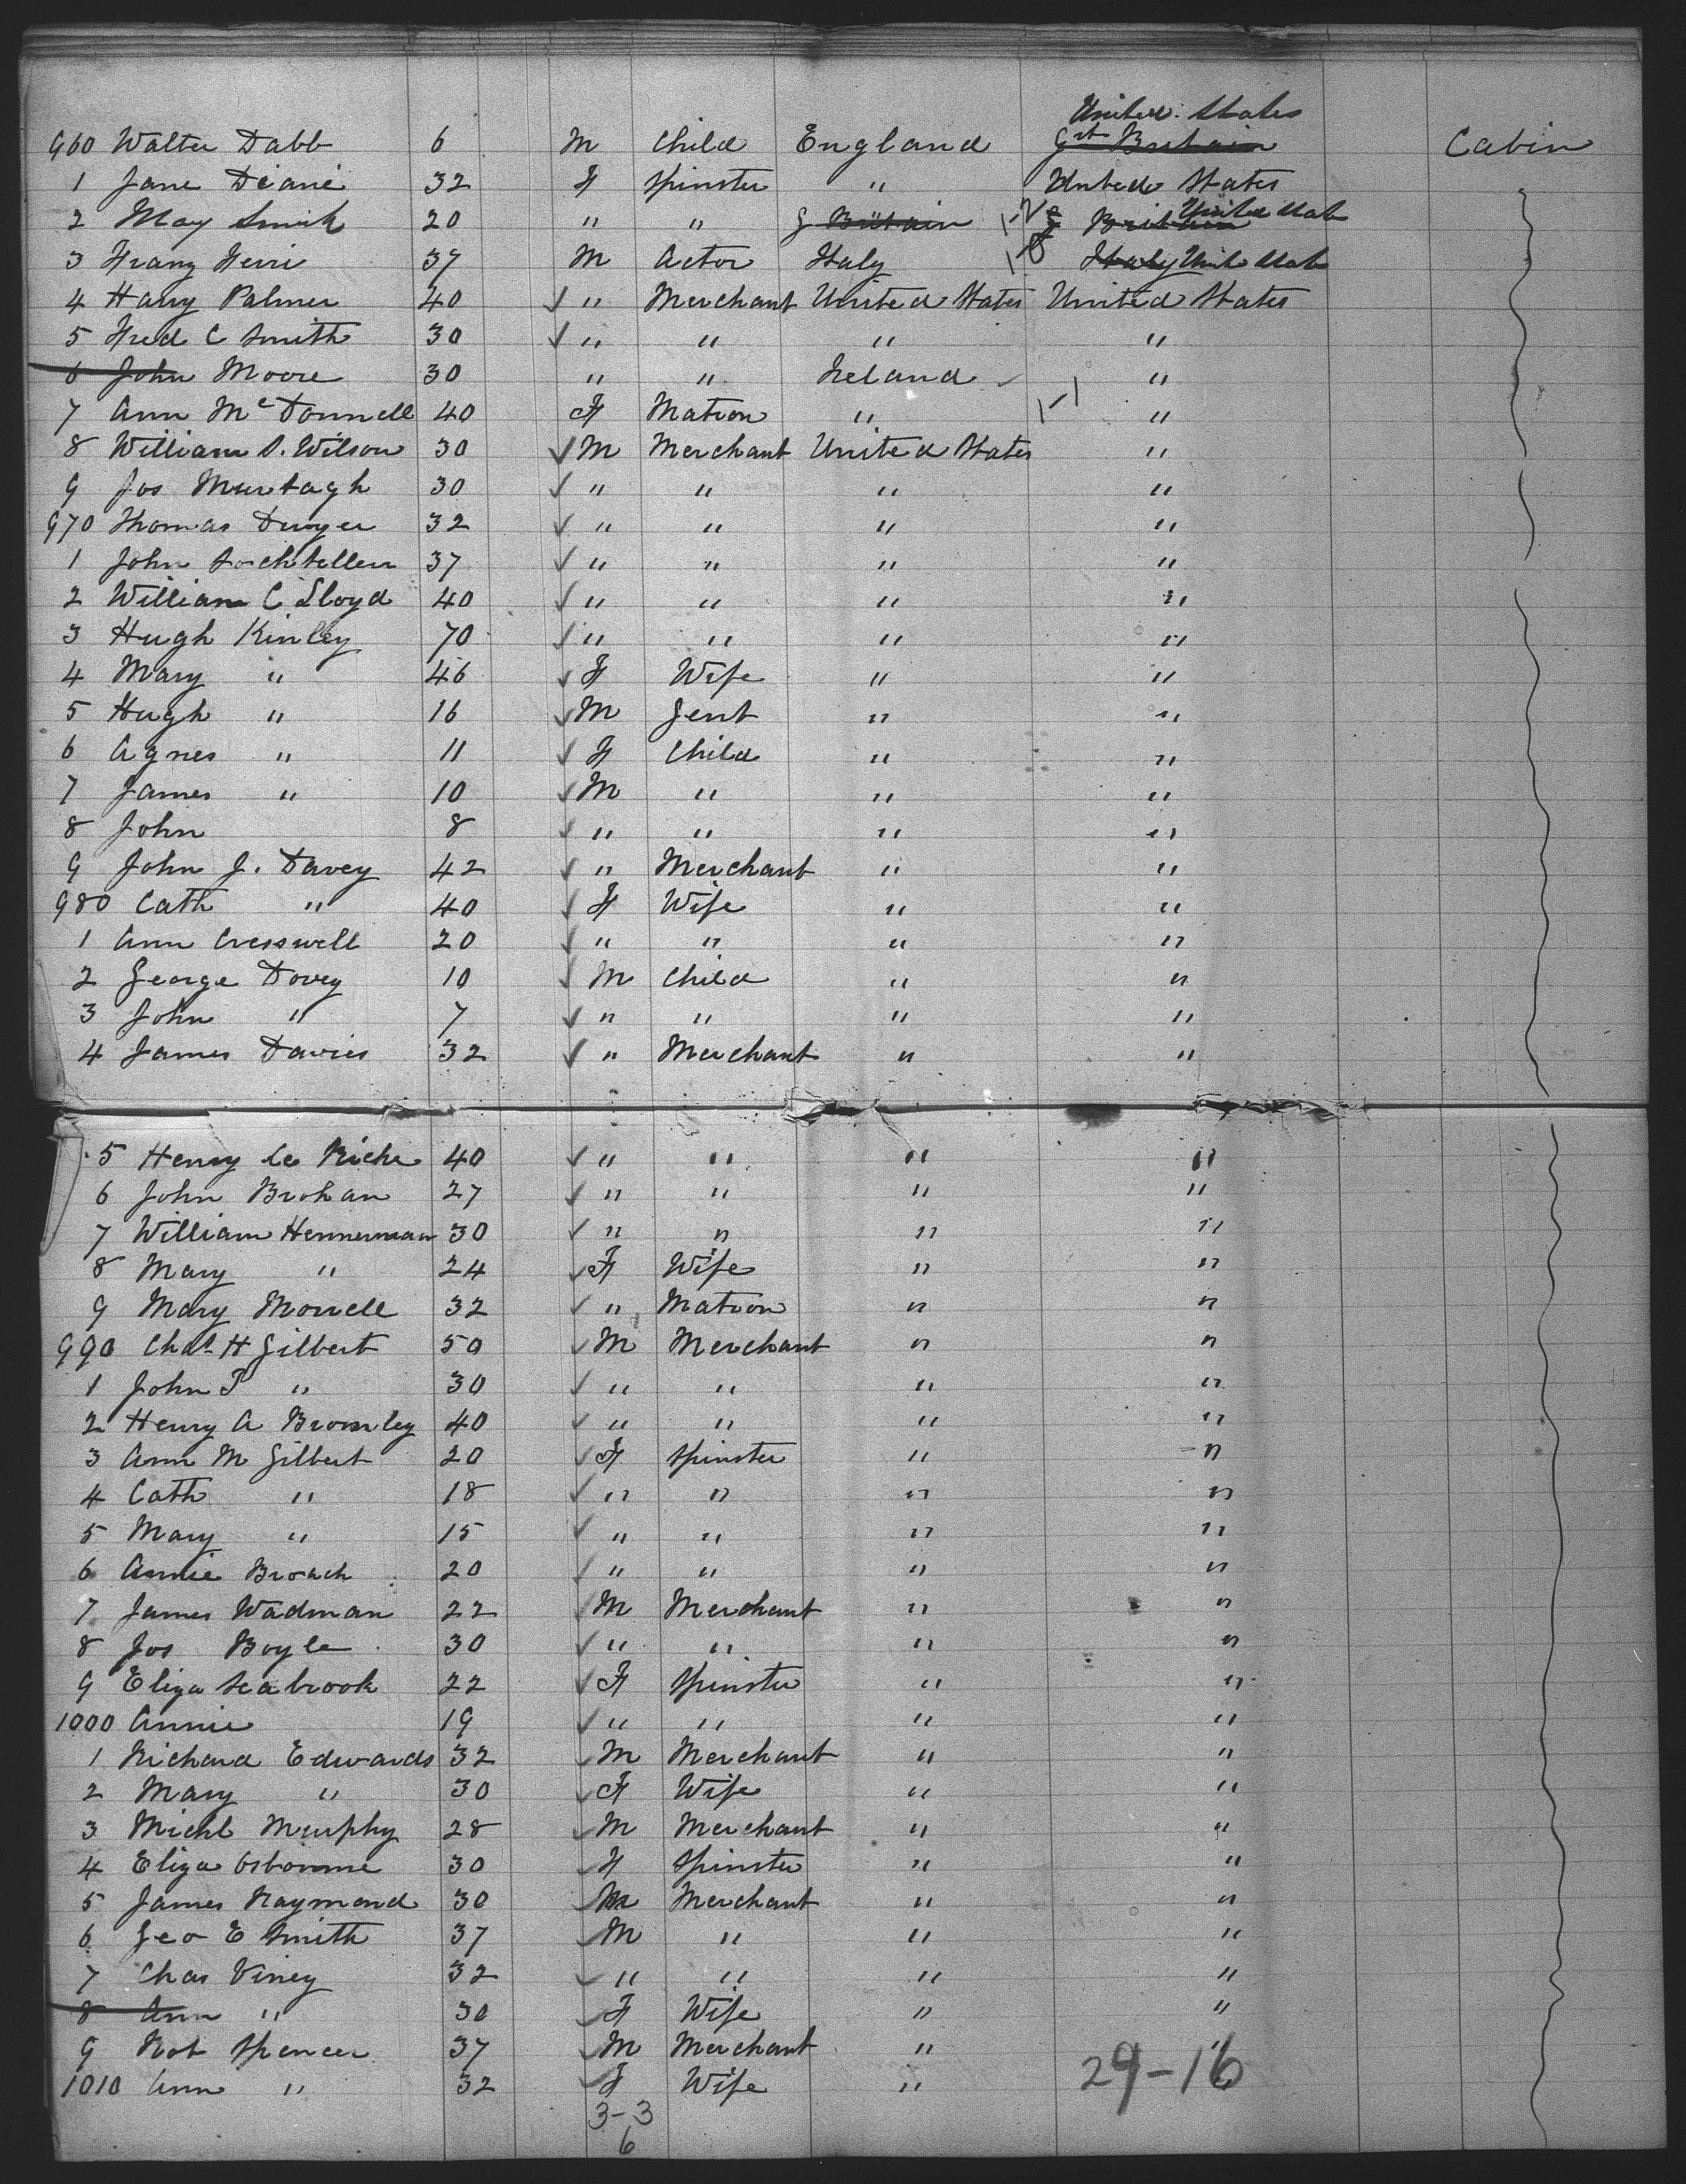 United States
960 Walter Dabb 6 M Child England Grt Britain Cabin
1 Jane Deane 32 F Spinster " United States
2 May Smith 20 " " G Britain G Britain United Stat
3 Franz 37 M Actor Italy Italy Unit Stat
4 Harry Palmer 40 " Merchant United States United States
5 Fred C Smith 30 " " " "
6 John Moore 30 " " Ireland "
7 Ann McDonnell 40 F Matron " 1-1 "
8 William S. Wilson 30 M Merchant United States "
9 Jos Murtagh 30 " " " "
970 Thomas Dwyer 32 " " " "
1 John 37 " " " "
2 William C Lloyd 40 " " " "
3 Hugh Kinley 70 " " " "
4 Mary " 46 F Wife " "
5 Hugh " 16 M Gent " "
6 Agnes " 11 F Child " "
7 James " 10 M " " "
8 John 8 " " " "
9 John J. Davey 42 " Merchant " "
980 Cath " 40 F Wife " "
1 Ann Cresswell 20 " " " "
2 George Dovey 10 M Child " "
3 John " 7 " " " "
4 James Davies 32 " Merchant " "
5 Henry Le Riche 40 " " " "
6 John Brohan 27 " " " "
7 William Hennerman 30 " " " "
8 Mary " 24 F Wife " "
9 Mary Morrell 32 " Matron " "
990 Chas H Gilbert 50 M Merchant " "
1 John T " 30 " " " "
2 Henry A Bromley 40 " " " "
3 Ann M Gilbert 20 F Spinster " "
4 Cath " 18 " " " "
5 Mary " 15 " " " "
6 Annie Broach 20 " " " "
7 James Wadman 22 M Merchant " "
8 Jos Boyle 30 " " " "
9 Eliza Seabrook 22 F Spinster " "
1000 Annie 19 " " " "
1 Richard Edwards 32 M Merchant " "
2 Mary " 30 F Wife " "
3 Michl Murphy 28 M Merchant " "
4 Eliza Osbourne 30 F Spinster " "
5 James Raymond 30 M Merchant " "
6 Geo E Smith 37 M " " "
7 Chas Viney 32 " " " "
8 Ann " 30 F Wife " "
9 Rot Spencer 37 M Merchant " "
1010 Ann " 32 F Wife " 29-16
3-3
6